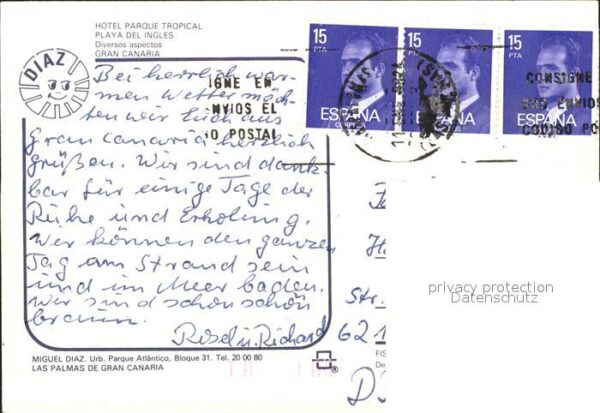 HOTEL PARQUE TROPICAL
PLAYA DEL INGLES
Diversos aspectos
GRAN CANARIA
DIAZ
Bei herrlich war-
men Wetter möch-
ten wir Euch aus
Gran Canaria herzlich
grüßen. Wir sind dank-
bar für einige Tage der
Ruhe und Erholung.
Wir können den ganzen
Tag am Strand sein
und im Meer baden.
Wir sind schon schön
braun.
Rosel u. Richard
MIGUEL DIAZ. Urb. Parque Atlántico, Bloque 31. Tel. 20 00 80
LAS PALMAS DE GRAN CANARIA
IGNE EN
ENVIOS EL
O POSTAL
15 PTA
ESPAÑA
CORREOS
15 PTA
ESPAÑA
15 PTA
ESPAÑA
CONSIGNE
SUS ENVIOS
CODIGO PO
privacy protection
Datenschutz
Str.
621
D
FIS
De
®